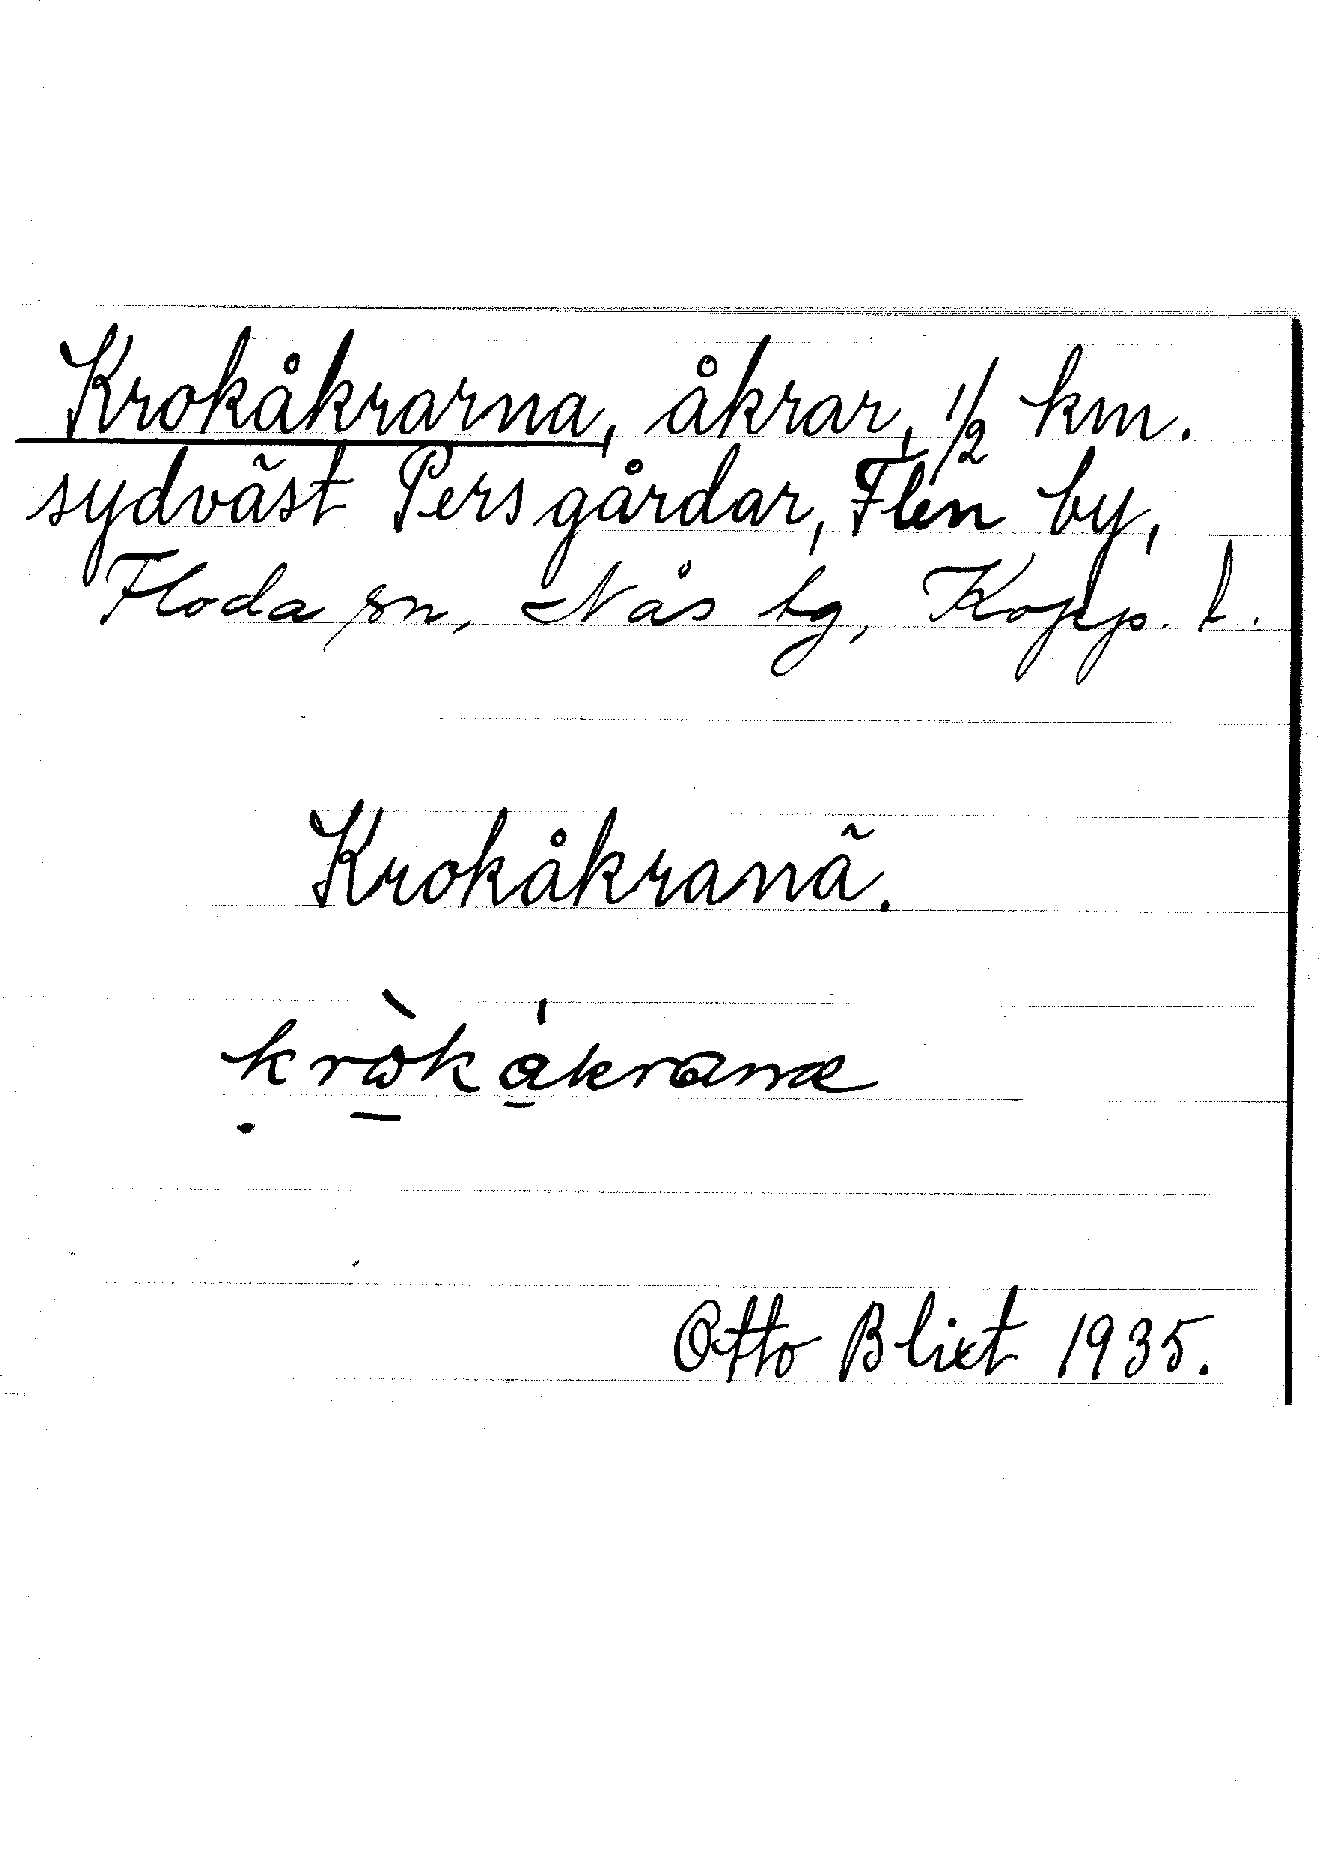 Krokåkrarna, åkrar, 1/2 km.
sydväst Persgårdar, Flen by,
Floda sn, Nås tg, Kopp. l.
Krokåkranä.
kròkåkranæ
Otto Blixt 1935.